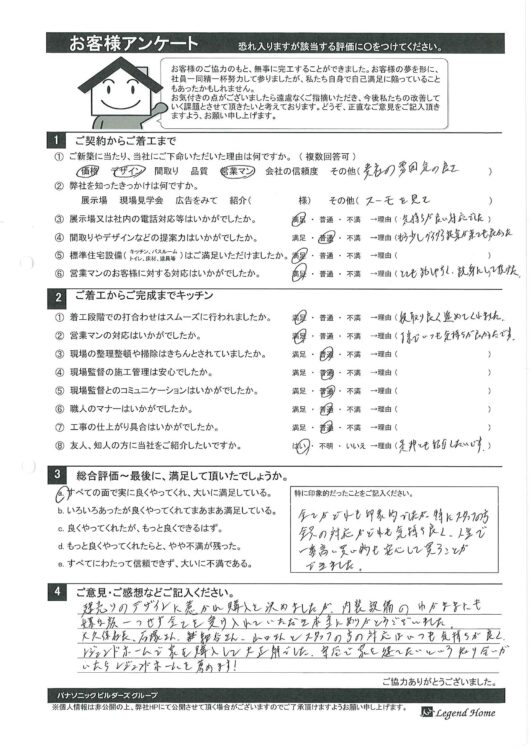 お客様アンケート 恐れ入りますが該当する評価に〇をつけてください。
お客様のご協力のもと、無事に完工することができました。お客様の夢を形に、
社員一同精一杯努力して参りましたが、私たち自身で自己満足に陥っていること
もあったかもしれません。
お気付きの点がございましたら遠慮なくご指摘いただき、今後私たちの改善して
いく課題とさせて頂きたいと考えております。どうぞ、正直なご意見をご記入頂き
ますよう、お願い申し上げます。
1 ご契約からご着工まで
① ご新築に当たり、当社にご下命いただいた理由は何ですか。(複数回答可)
価格 デザイン 間取り 品質 営業マン 会社の信頼度 その他(
② 弊社を知ったきっかけは何ですか。
展示場 現場見学会 広告をみて 紹介( 様) その他( スーモを見て )
③ 展示場又は社内の電話対応等はいかがでしたか。 満足・普通・不満 →理由(
④ 間取りやデザインなどの提案力はいかがでしたか。 満足・普通・不満 →理由(
⑤ 標準住宅設備(キッチン、バスルーム トイレ、床材、建具等)はご満足いただけましたか。 満足・普通・不満 →理由( )
⑥ 営業マンのお客様に対する対応はいかがでしたか。 満足・普通・不満 →理由(
2 ご着工からご完成までキッチン
① 着工段階での打合わせはスムーズに行われましたか。 満足・普通・不満 →理由( 段取り良く進めてくれました。
② 営業マンの対応はいかがでしたか。 満足・普通・不満 →理由(
③ 現場の整理整頓や掃除はきちんとされていましたか。 満足・普通・不満 →理由( )
④ 現場監督の施工管理は安心でしたか。 満足・普通・不満 →理由( )
⑤ 現場監督とのコミュニケーションはいかがでしたか。 満足・普通・不満 →理由( )
⑥ 職人のマナーはいかがでしたか。 満足・普通・不満 →理由( )
⑦ 工事の仕上がり具合はいかがでしたか。 満足・普通・不満 →理由( )
⑧ 友人、知人の方に当社をご紹介したいですか。 はい・不明・いいえ →理由( 是非とも紹介したいです。 )
3 総合評価～最後に、満足して頂いたでしょうか。
a. すべての面で実に良くやってくれ、大いに満足している。
b. いろいろあったが良くやってくれてまあまあ満足している。
c. 良くやってくれたが、もっと良くできるはず。
d. もっと良くやってくれたらと、やや不満が残った。
e. すべてにわたって信頼できず、大いに不満である。
特に印象的だったことをご記入ください。
全てがとても印象的でしたが、特にスタッフの方
全員の対応がとても気持ち良く、人生で
一番高い買い物を安心して買うことが
できました。
4 ご意見・ご感想などご記入ください。
建売りのデザインに惹かれ購入を決めましたが、内装設備のわがままにも
嫌な顔一つせず全てを受け入れていただき本当にありがとうございました。
スタッフの方の対応はいつも気持ちが良く、
レジェンドホームで家を購入して大正解でした。身近で家を建てたいという知り合いが
いたらレジェンドホームを薦めます!
ご協力ありがとうございました。
パナソニック ビルダーズ グループ
※個人情報は非公開の上、弊社HPにて公開させて頂く場合がございますのでご了承頂けますようお願い申し上げます。
Legend Home